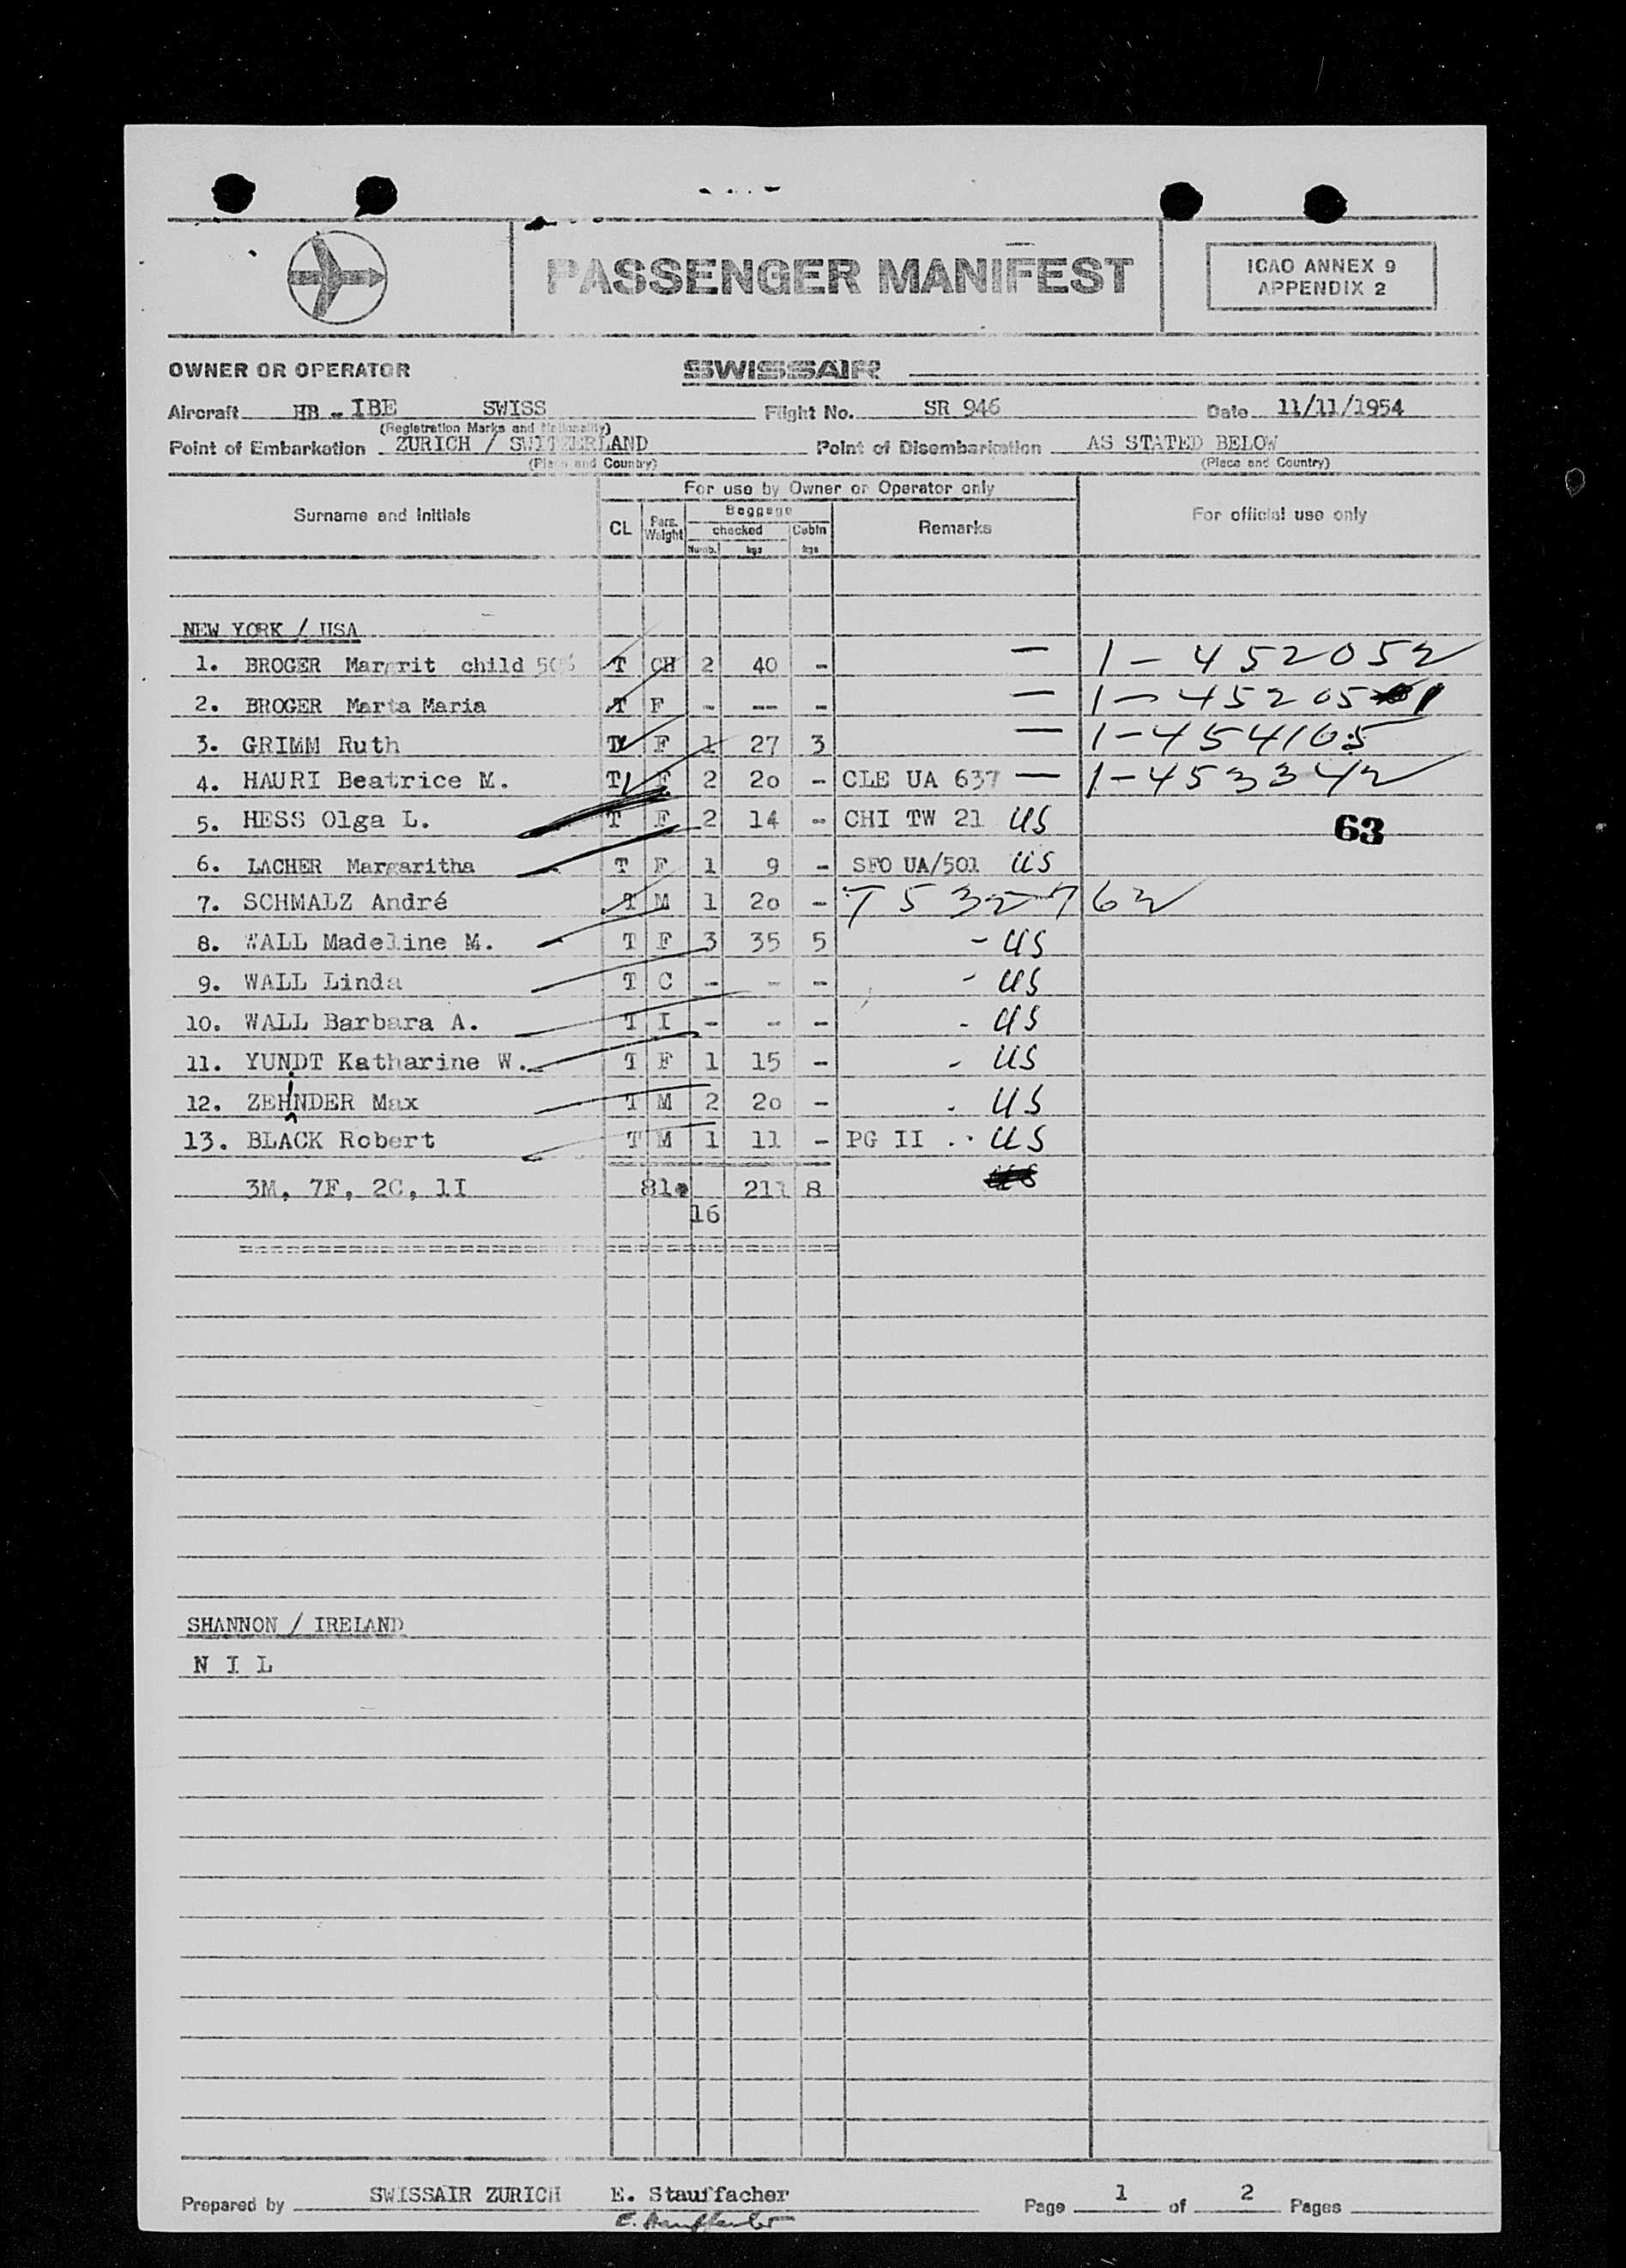 PASSENGER MANIFEST
ICAO ANNEX 9
APPENDIX 2
OWNER OR OPERATOR SWISSAIR
Aircraft HB - IBE SWISS Flight No. SR 946 Date 11/11/1954
(Registration Marks and Nationality)
Point of Embarkation ZURICH / SWITZERLAND Point of Disembarkation AS STATED BELOW
(Place and Country) (Place and Country)
For use by Owner or Operator only
Surname and Initials CL Pars. Weight Baggage checked Numb. kgs Cabin kgs Remarks For official use only
NEW YORK / USA
1. BROGER Margrit child 50% T CH 2 40 - — 1-452052
2. BROGER Marta Maria T F - -- - — 1-45205 1
3. GRIMM Ruth T F 1 27 3 — 1-454165
4. HAURI Beatrice M. T F 2 20 - CLE UA 637 — 1-453342
5. HESS Olga L. T F 2 14 - CHI TW 21 US 63
6. LACHER Margaritha T F 1 9 - SFO UA/501 US
7. SCHMALZ André T M 1 20 - T532762
8. WALL Madeline M. T F 3 35 5 - US
9. WALL Linda T C - - - - US
10. WALL Barbara A. T I - - - - US
11. YUNDT Katharine W. T F 1 15 - - US
12. ZEHNDER Max T M 2 20 - . US
13. BLACK Robert T M 1 11 - PG II .. US
3M, 7F, 2C, 1I 81 211 8
16
SHANNON / IRELAND
N I L
Prepared by SWISSAIR ZURICH E. Stauffacher Page 1 of 2 Pages
E. Stauffacher